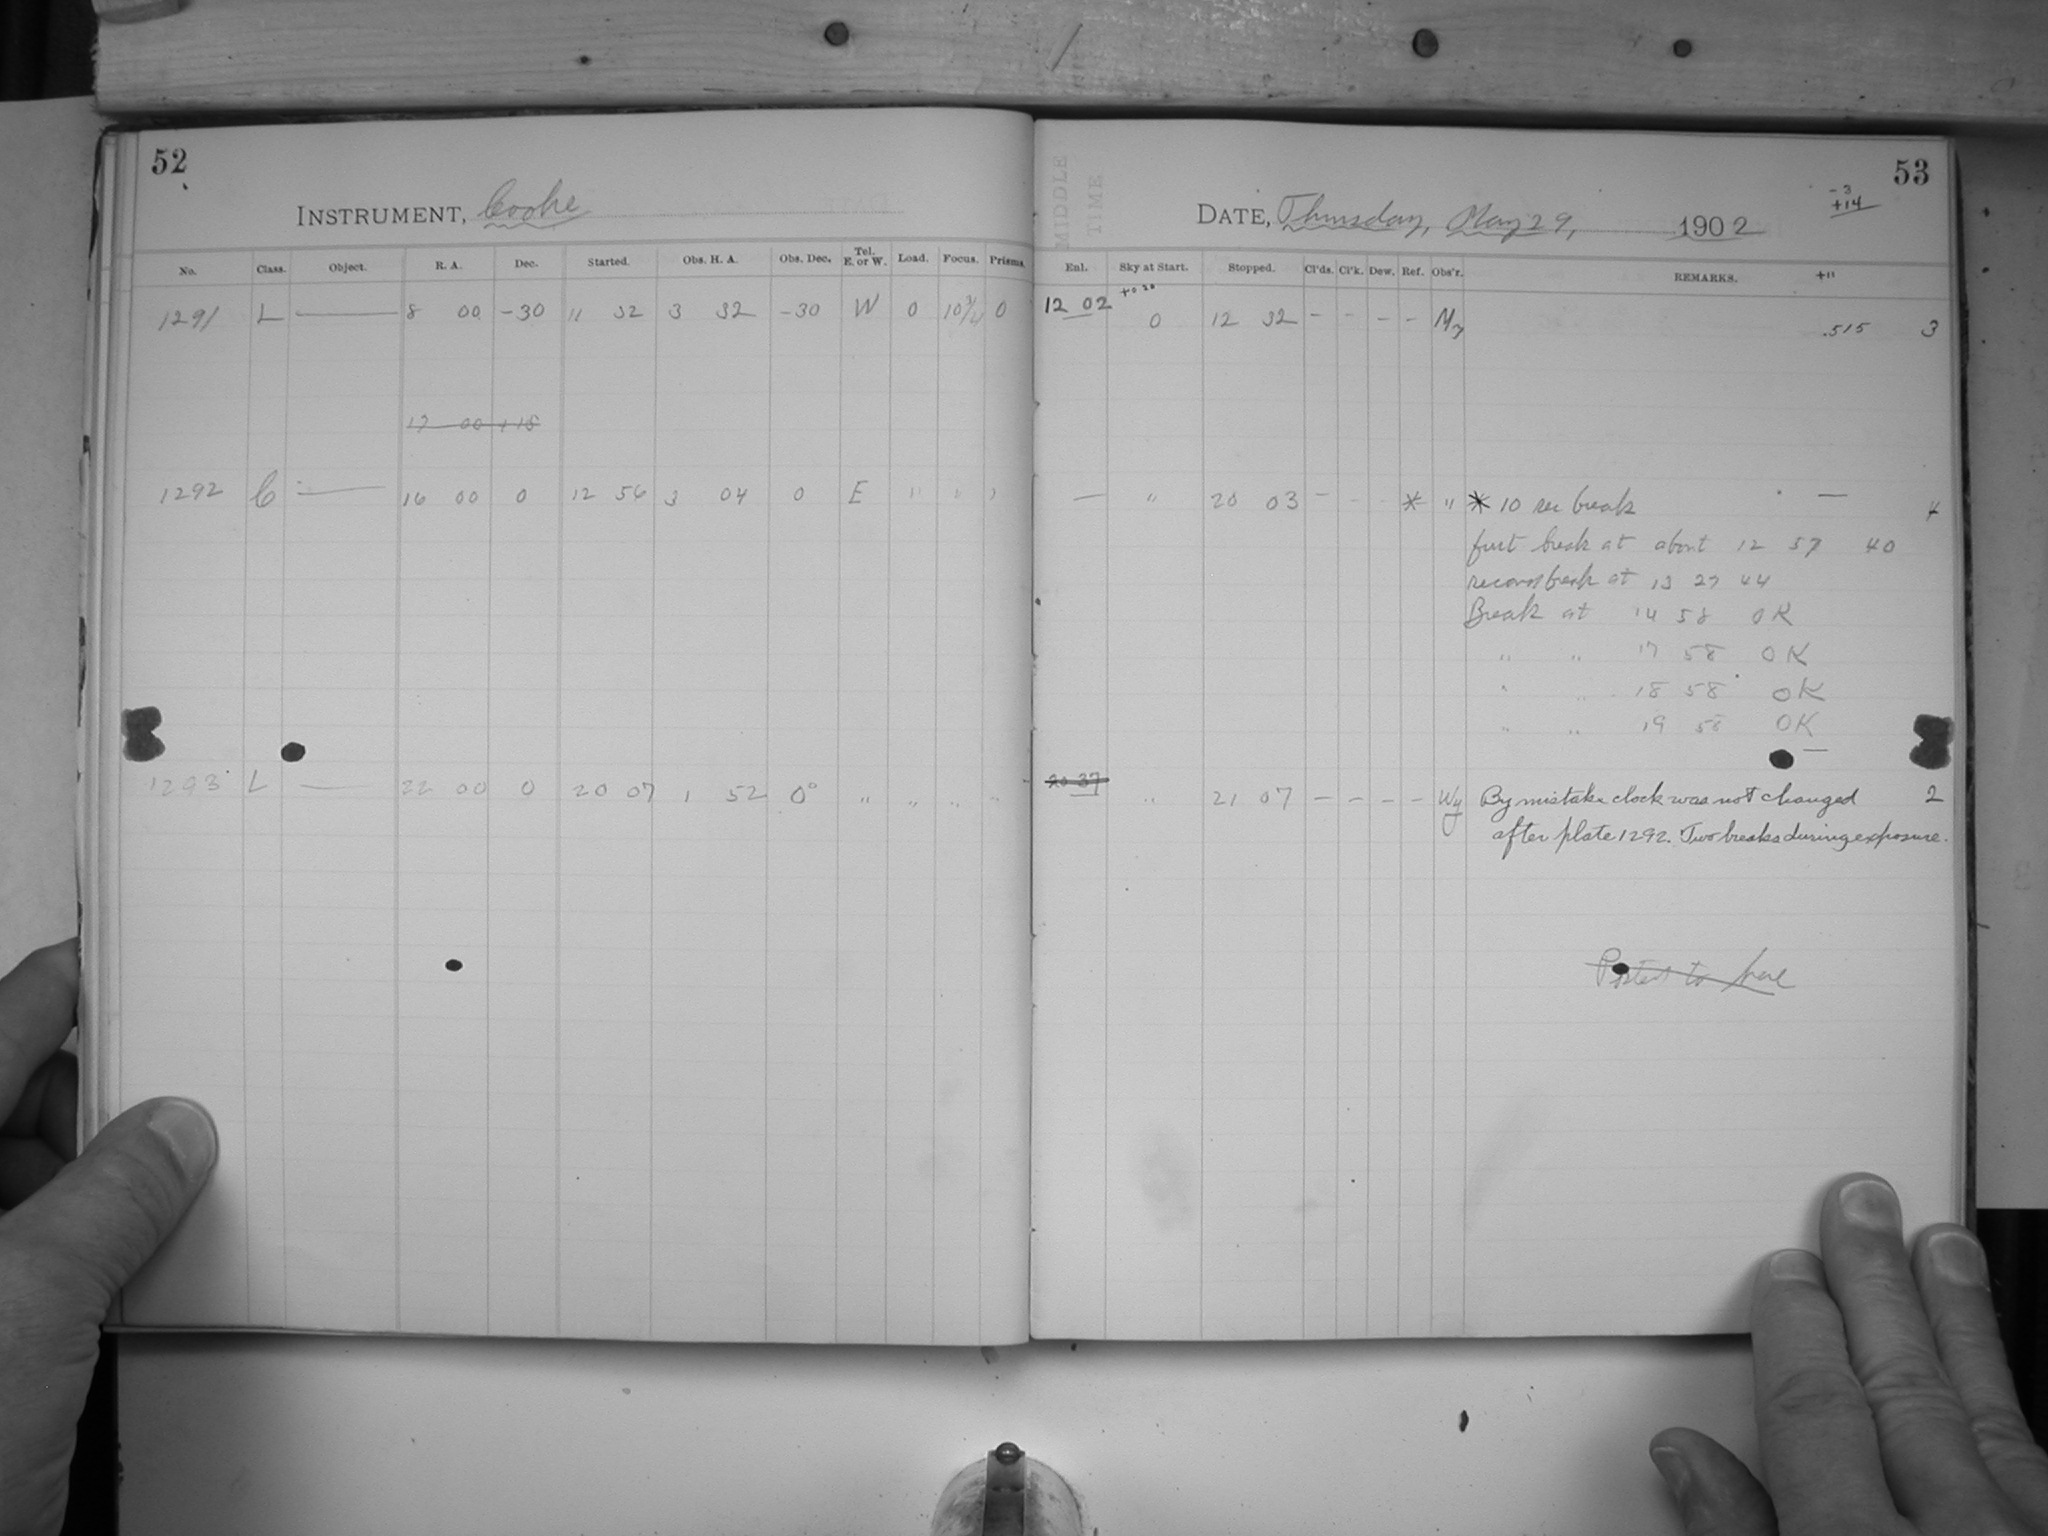 52
INSTRUMENT, Cooke
No. Class. Object. R. A. Dec. Started. Obs. H. A. Obs. Dec. Tel. E. or W. Load. Focus. Prisms.
1291 L — 8 00 -30 11 32 3 32 -30 W 0 10 3/4 0
17 00 +15
1292 C — 16 00 0 12 56 3 04 0 E " " "
1293 L — 22 00 0 20 07 1 52 0° " " " "
MIDDLE
TIME
53
-3
+14
DATE, Thursday, May 29, 1902
Enl. Sky at Start. Stopped. Cl'ds. Cl'k. Dew. Ref. Obs'r. REMARKS. +11
12 02 +0 20 0 12 32 - - - - My .515 3
— " 20 03 - - - * " * 10 sec break — 4
first break at about 12 57 40
second break at 13 27 44
Break at 14 58 OK
" " 17 58 OK
" " 18 58 OK
" " 19 58 OK
20 37 " 21 07 - - - - Wy By mistake clock was not changed 2
after plate 1292. Two breaks during exposure.
Posted to here